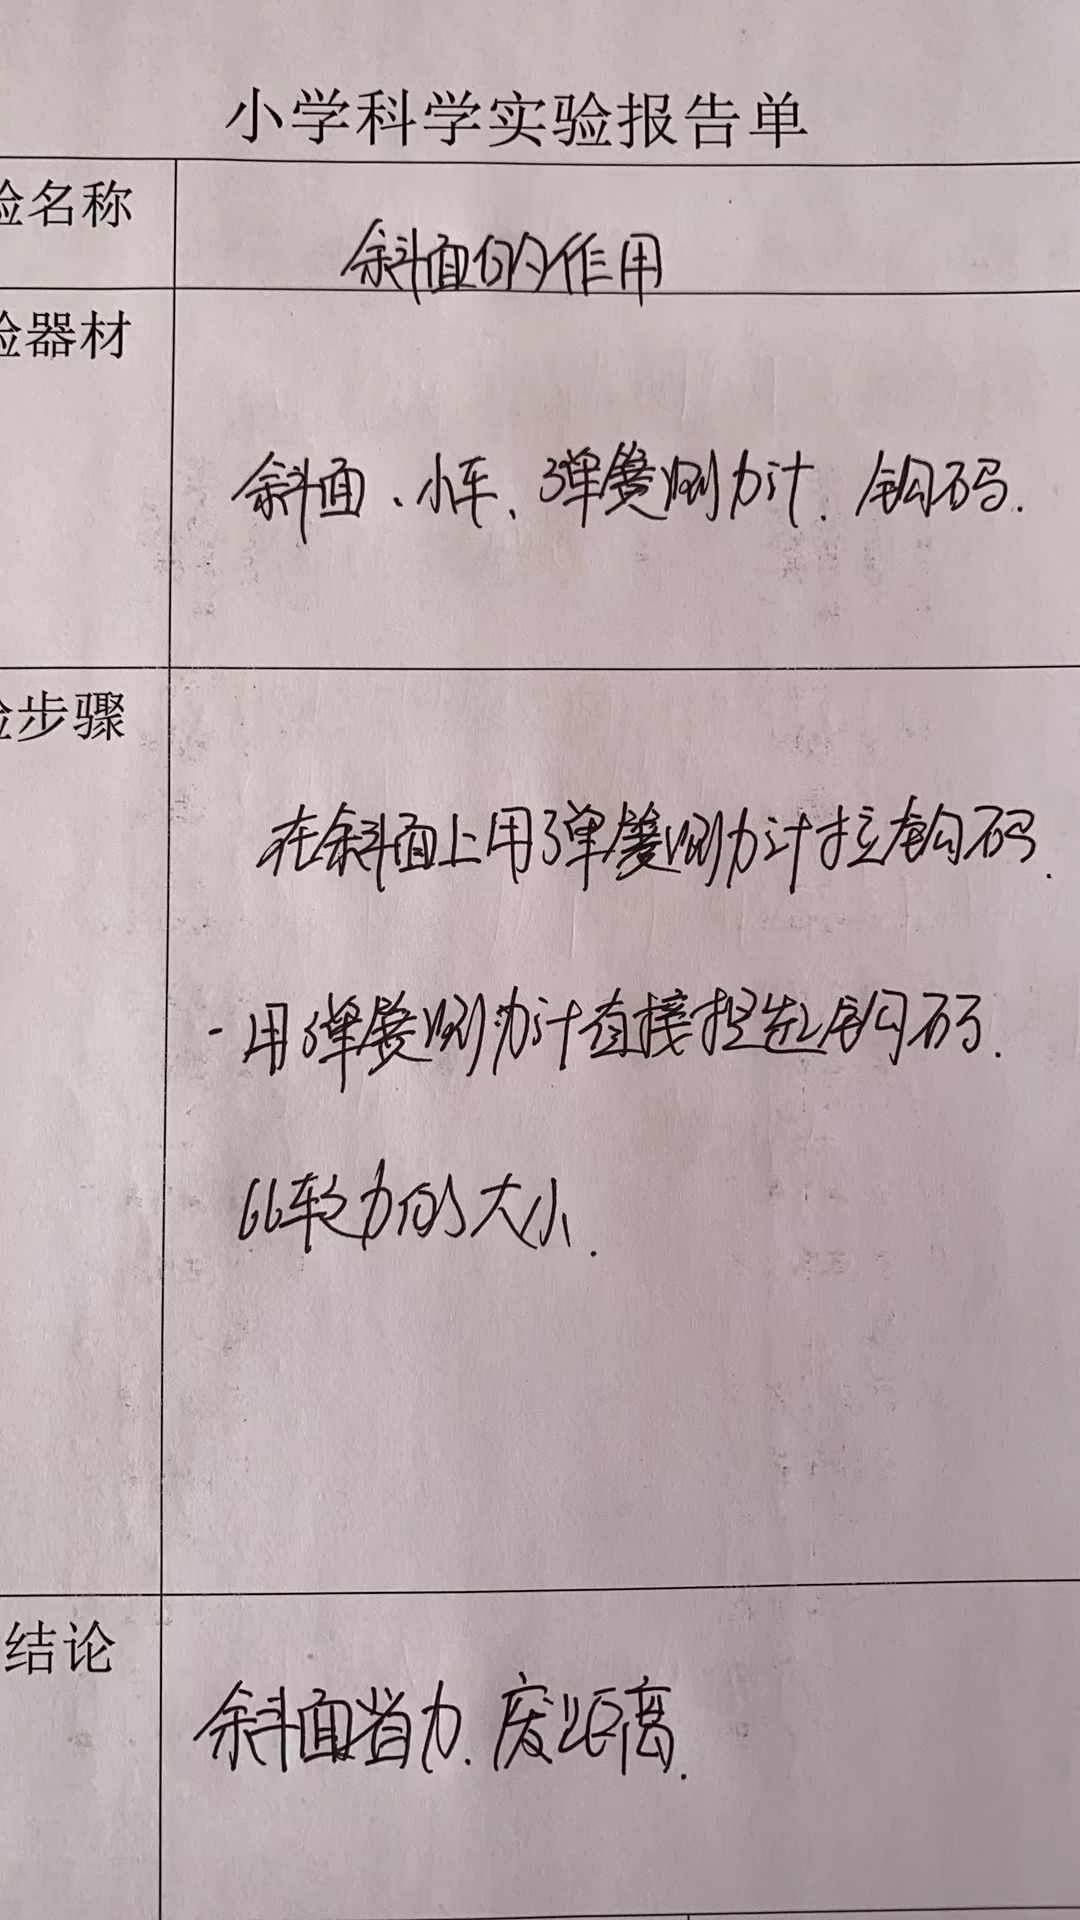 小学科学实验报告单
验名称
斜面的作用
验器材
斜面、小车、弹簧测力计. 钩码.
验步骤
在斜面上用弹簧测力计拉钩码.
-用弹簧测力计直接提起钩码.
比较力的大小.
结论
斜面省力.废距离.